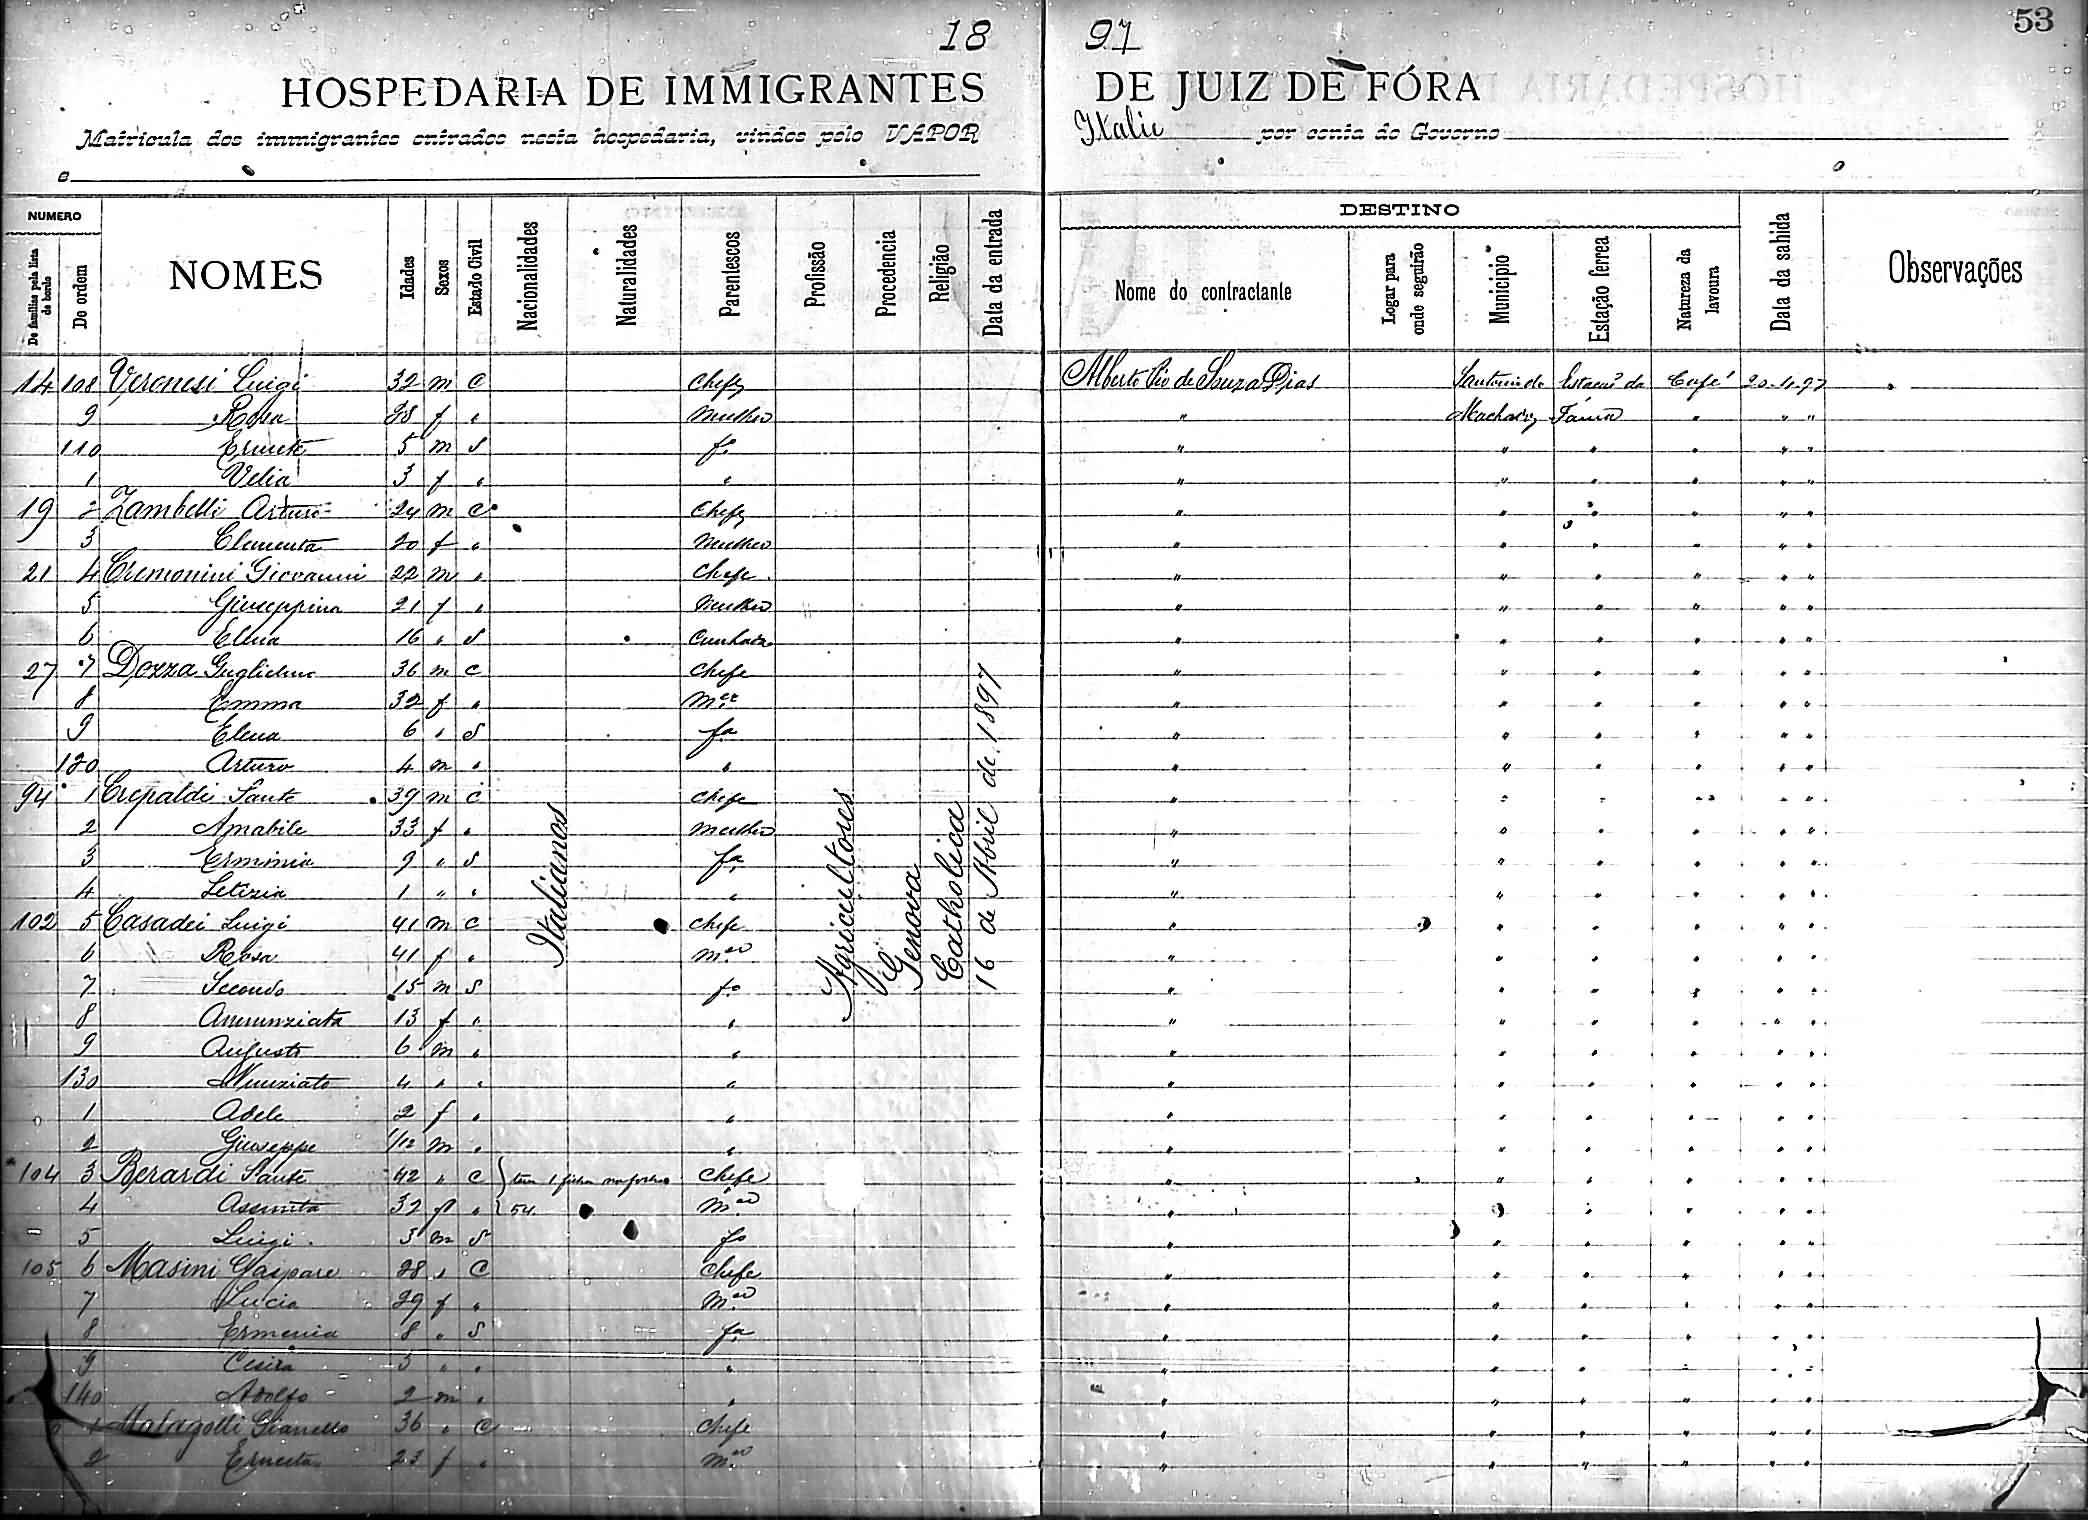 18 97
53
HOSPEDARIA DE IMMIGRANTES DE JUIZ DE FÓRA
Matricula dos immigrantes entrados nesta hospedaria, vindos pelo VAPOR Italie por conta do Governo
NUMERO
De familias pela lista de bordo
De ordem
NOMES
Idades
Sexos
Estado Civil
Nacionalidades
Naturalidades
Parentescos
Profissão
Procedencia
Religião
Data da entrada
DESTINO
Nome do contractante
Logar para onde seguirão
Municipio
Estação ferrea
Natureza da lavoura
Data da sahida
Observações
14 108 Veronesi Luigi 32 m C Chefe Alberto Pio de Souza Dias Santonio do Café 20-4-97
9 Rosa 28 f " Mulher " Machado Fama " " "
110 5 m S fo " " " " " "
1 Velia 3 f " " " " " " " "
19 2 Zambelli Arturo 24 m C Chefe " " " " " "
3 Clementa 20 f " Mulher " " " " " "
21 4 Cremonini Giovanni 22 m " Chefe " " " " " "
5 Giuseppina 21 f " Mulher " " " " " "
6 16 " S Cunhada " " " " " "
27 7 Dozza Guglielmo 36 m C Chefe " " " " " "
8 Emma 32 f " Mer " " " " " "
9 Elena 6 " S fa " " " " " "
120 Arturo 4 m " " " " " " " "
94 1 Crepaldi Sante 39 m C Chefe " " " " " "
2 Amabile 33 f " Mulher " " " " " "
3 Erminia 9 " S fa " " " " " "
4 Letizia 1 " " " " " " " " "
102 5 Casadei Luigi 41 m C Chefe " " " " " "
6 Rosa 41 f " Mer " " " " " "
7 Secondo 15 m S fo " " " " " "
8 Annunziata 13 f " " " " " " " "
9 Augusto 6 m " " " " " " " "
130 Nunziato 4 " " " " " " " " "
1 Adele 2 f " " " " " " " "
2 Giuseppe 1/12 m " " " " " " " "
104 3 Berardi Sante 42 " C tem 1 na folha Chefe " " " " " "
4 Assunta 32 f " 54. Mer " " " " " "
5 Luigi 3 m S fo " " " " " "
105 6 Masini Gaspare 28 " C Chefe " " " " " "
7 Lucia 29 f " Mer " " " " " "
8 Ermenia 8 " S fa " " " " " "
9 Cesira 5 " " " " " " " " "
140 Adolfo 2 m " " " " " " " "
1 36 " C Chefe " " " " " "
2 Ernesta 23 f " Mer " " " " " "
Italianos
Agricultores
Genova
Catholica
16 de Abril de 1897